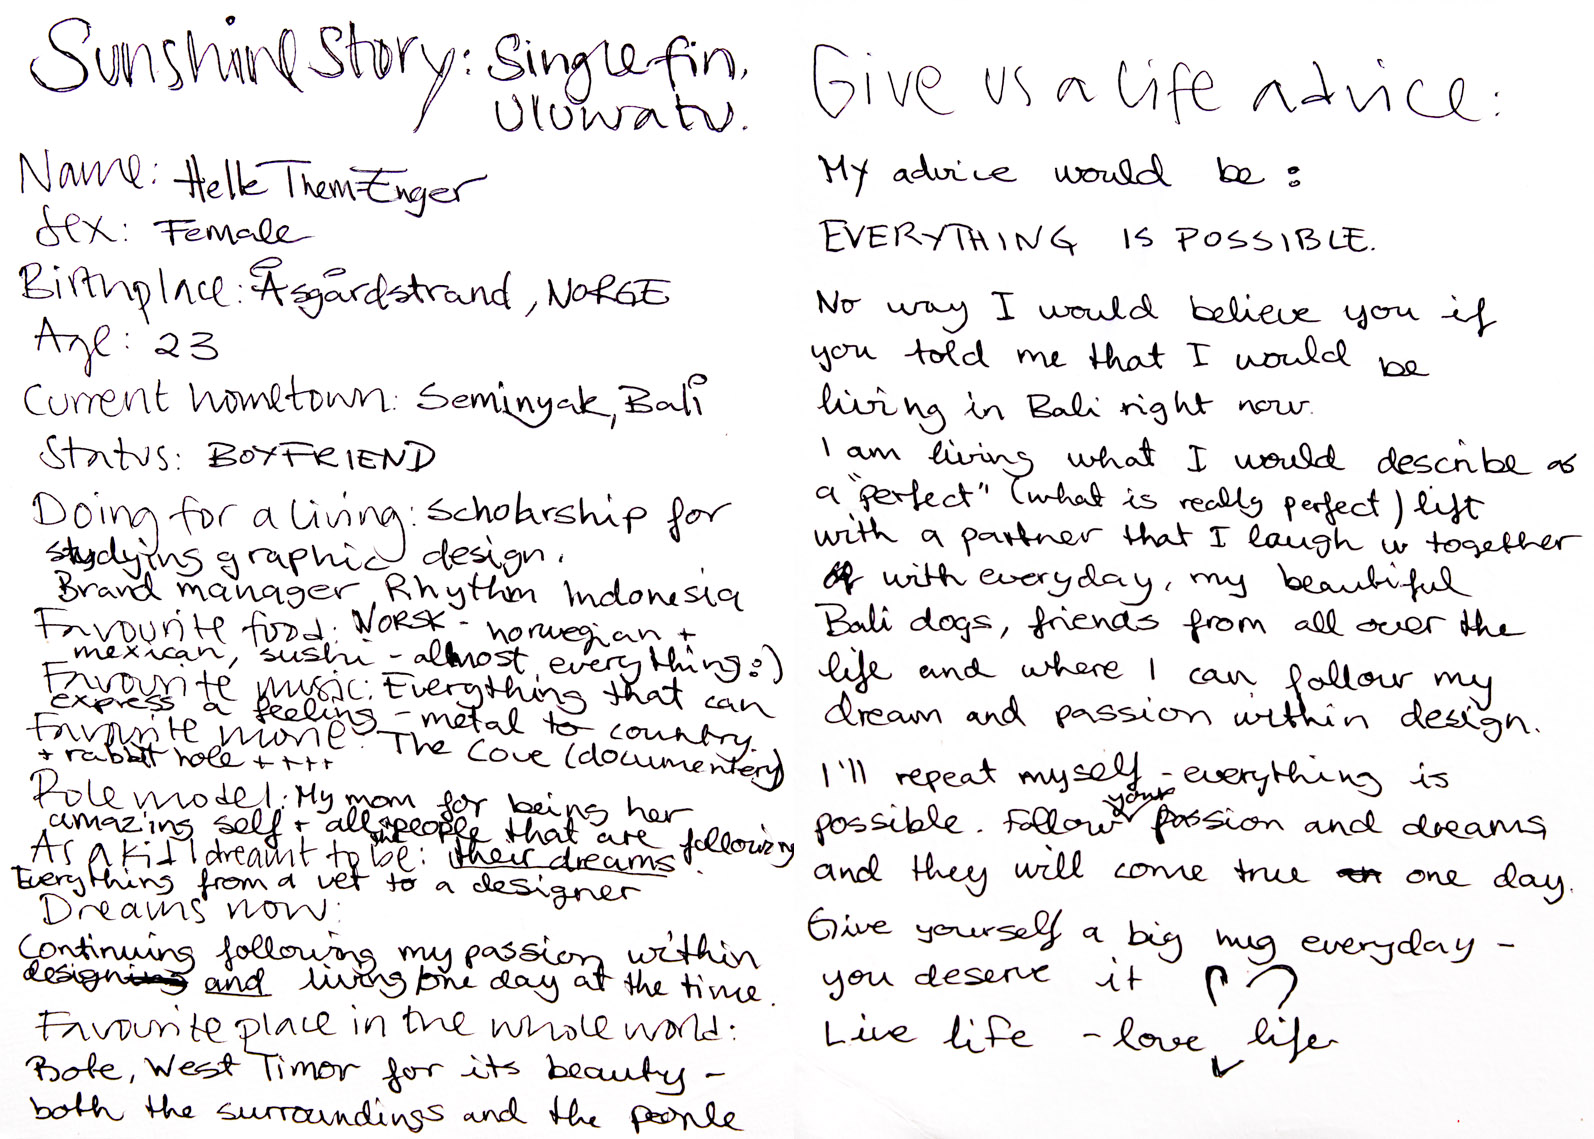 Sunshine Story: Single fin,
Uluwatu.
Name: Helle Them-Enger
Sex: Female
Birthplace: Åsgårdstrand, NORGE
Age: 23
Current hometown: Seminyak, Bali
Status: BOYFRIEND
Doing for a living: Scholarship for
studying graphic design.
Brand manager Rhythm Indonesia
Favourite food: NORSK - norwegian +
mexican, sushi - almost everything :)
Favourite music: Everything that can
express a feeling - metal to country.
Favourite movie: The Cove (documentery)
+ rabbit hole ++++
Role model: My mom for being her
amazing self + all the people that are following
their dreams.
As a kid I dreamt to be:
Everything from a vet to a designer
Dreams now:
Continuing following my passion within
design and living one day at the time.
Favourite place in the whole world:
Bote, West Timor for its beauty -
both the surroundings and the people
Give us a life advice:
My advice would be:
EVERYTHING IS POSSIBLE.
No way I would believe you if
you told me that I would be
living in Bali right now.
I am living what I would describe as
a "perfect" (what is really perfect) lift
with a partner that I laugh w together
with everyday, my beautiful
Bali dogs, friends from all over the
life and where I can follow my
dream and passion within design.
I'll repeat myself - everything is
possible. Follow your passion and dreams
and they will come true one day.
Give yourself a big hug everyday -
you deserve it
Live life - love life